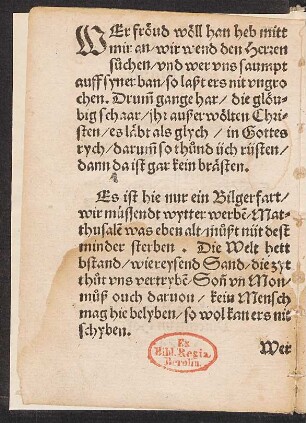 WEr fröud wöll han heb mitt
mir an/wir wend den Herren
sůchen/vnd wer vns saumpt
auff syner ban/so laßt ers nit vngro
chen. Drum̃ gange har/die glöu-
big schaar/jhr außerwölten Chri-
sten/es läbt als glych/in Gottes
rych/darum̃ so thůnd üch rüsten/
dann da ist gar kein brästen.
Es ist hie nur ein Bilgerfart/
wir müssendt wytter werbẽ/Mat-
thusalẽ was eben alt/můßt nüt dest
minder sterben. Die Welt hett
bstand/wie reysend Sand/die zyt
thůt vns vertrybẽ/Soñ vn Mon/
můß ouch daruon/kein Mensch
mag hie belyben/so wol kan ers nit
schyben.
Wer
Ex
Bibl.Regia
Berolin.